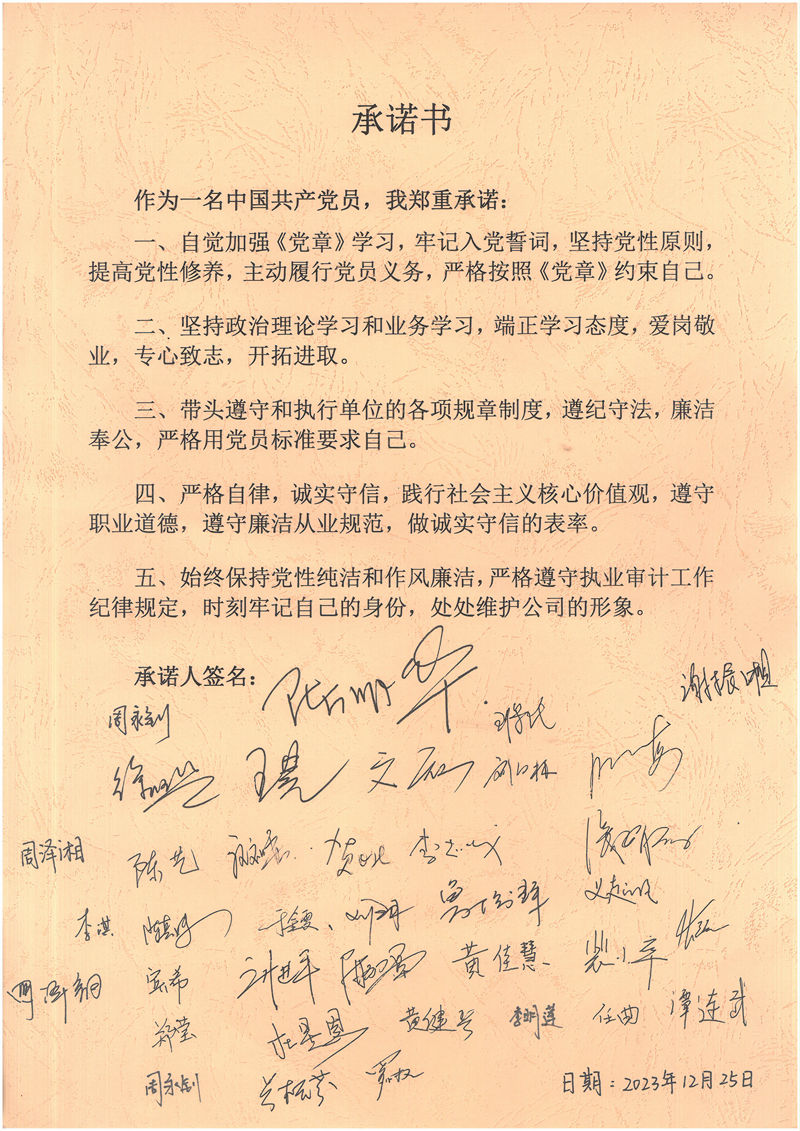 承诺书
作为一名中国共产党员，我郑重承诺：
一、自觉加强《党章》学习，牢记入党誓词，坚持党性原则，
提高党性修养，主动履行党员义务，严格按照《党章》约束自己。
二、坚持政治理论学习和业务学习，端正学习态度，爱岗敬
业，专心致志，开拓进取。
三、带头遵守和执行单位的各项规章制度，遵纪守法，廉洁
奉公，严格用党员标准要求自己。
四、严格自律，诚实守信，践行社会主义核心价值观，遵守
职业道德，遵守廉洁从业规范，做诚实守信的表率。
五、始终保持党性纯洁和作风廉洁，严格遵守执业审计工作
纪律规定，时刻牢记自己的身份，处处维护公司的形象。
承诺人签名：
周永钊
周泽湘 陈艺
李淇
黄佳慧
郑莹 黄健兵 李明莲 任曲 谭连武
周永钊
日期：2023年12月25日